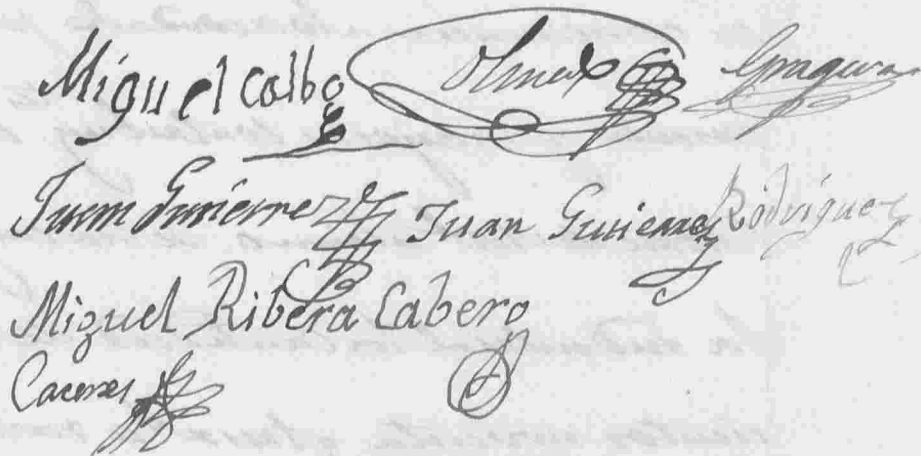 Miguel Calbo Olmedo Gragera
Juan Gutierrez Juan Gutierrez Rodriguez
Miguel Ribera Cabero
Caceres